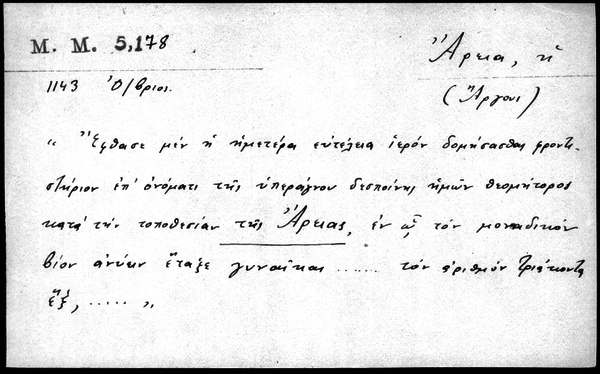 M. M. 5,178
Ἄρεια, ἡ
1143 Ὀ/βριοι.
(Ἄργους)
" Ἔφθασε μέν ἡ ἡμετέρα εὐτέλεια ἱερόν δομήσασθαι φροντι-
στήριον ἐπ' ὀνόματι τῆς ὑπεράγνου δεσποίνης ἡμῶν θεομήτορος
κατά τήν τοποθεσίαν τῆς Ἄρειας, ἐν ᾧ τόν μοναδικόν
βίον ἀνύειν ἔταξε γυναῖκας ...... τόν ἀριθμόν τριάκοντα
ἕξ, ..... "